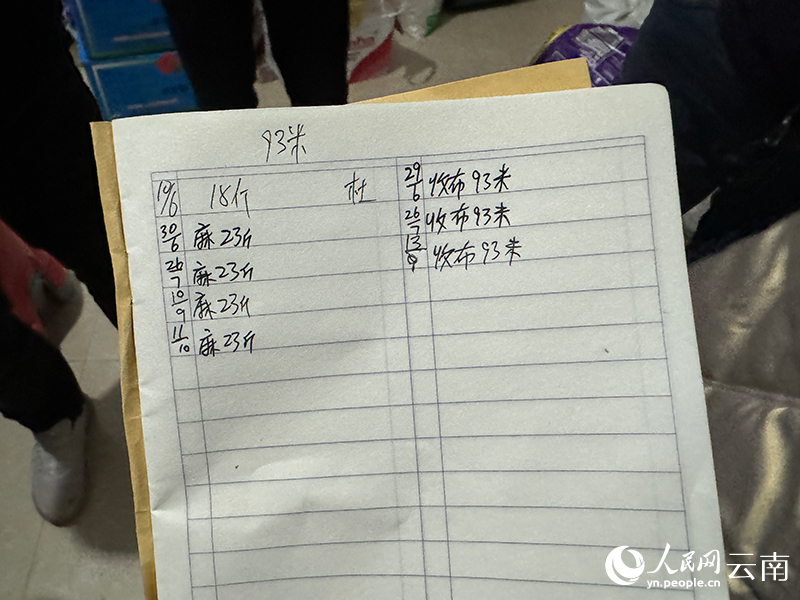 93米
10/6 18行 杜
30/6 麻23斤
26/7 麻23斤
10/9 麻23斤
11/10 麻23斤
29/6 收布93米
26/7 收布93米
13/9 收布93米
人民网 云南
yn.people.cn